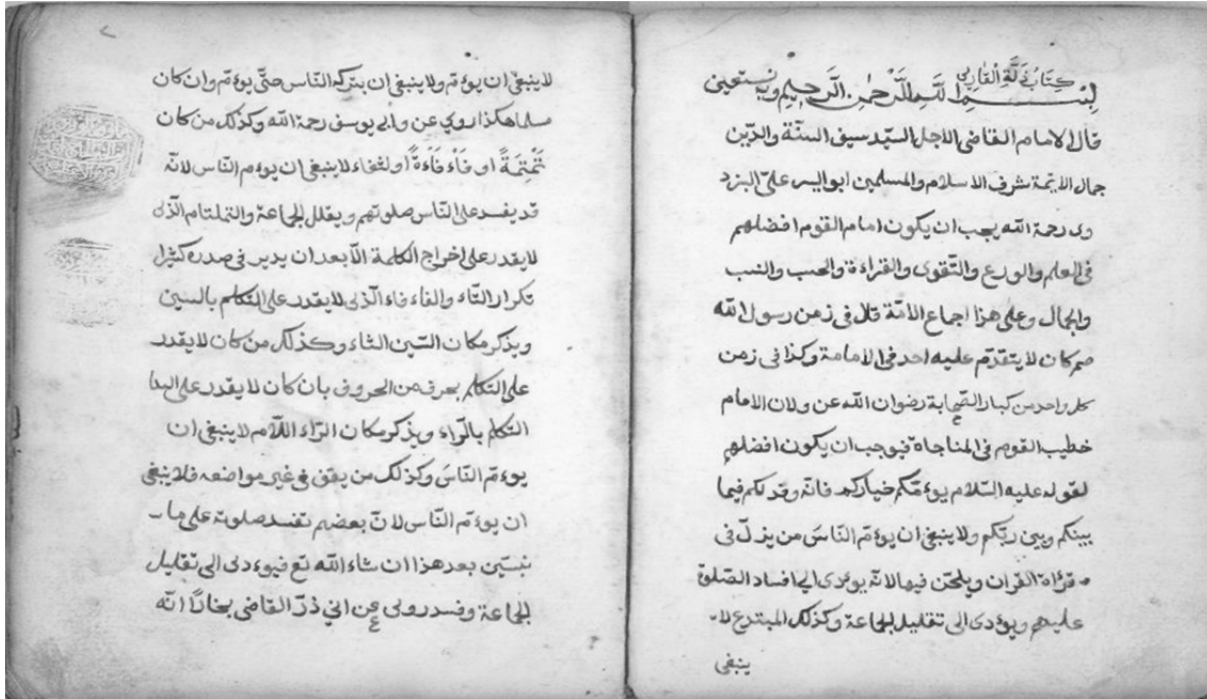 كتاب زلة القاري
بسم الله الرحمن الرحيم وبه نستعين
قال الامام القاضي الاجل السيد سيف السنة والدين
جمال الايمة شرف الاسلام والمسلمين ابو اليسر علي البزد
وي رحمة الله يجب ان يكون امام القوم افضلهم
في العلم والورع والتقوى والقراءة والحسب والنسب
والجمال وعلى هذا اجماع الامة قال في زمن رسول الله
صم كان لا يتقدم عليه احد في الامامة وكذا في زمن
كل واحد من كبار الصحابة رضوان الله عن ولان الامام
خطيب القوم في المناجاة فيوجب ان يكون افضلهم
لقوله عليه السلام يوءمكم خياركم فانه وفدلكم فيما
بينكم وبين ربكم ولا ينبغي ان يوءم الناسَ من يزلّ في
قراءة القران ويلحن فيها لانه يوءدى الى افساد الصلوة
عليهم ويوءدى الى تقليل الجماعة وكذلك المبتدع لا
ينبغي
لا ينبغي ان يوءم ولا ينبغي ان يتركه الناس حتى يوءم وان كان
مسلما هكذا روي عن وابي يوسف رحمة الله وكذلك من كان
تَمْتِمَةً او فَأْءفَاءةً او لثغاء لا ينبغي ان يوءم الناس لانه
قد يفسد على الناس صلوتهم ويقلل الجماعة والتمتام الذي
لا يقدر على اخراج الكلمة الا بعد ان يدير في صدره كثيرا
تكرار التاء والفاء فاء الذي لا يقدر على التكلم بالسين
ويذكر مكان السين الثاء وكذلك من كان لا يقدر
على التكلم بحرف من الحروف بان كان لا يقدر على
التكلم بالراء ويذكر مكان الراء اللام لا ينبغي ان
يوءم الناسَ وكذلك من يقف في غير مواضعه فلا ينبغي
ان يوءم الناس لانّ بعضهم تفسد صلوته على ما
نبيّن بعد هذا ان شاء الله تع فيوءدى الى تقليل
الجماعة وفسد روى عن ابي ذرّ القاضي بخارا انه